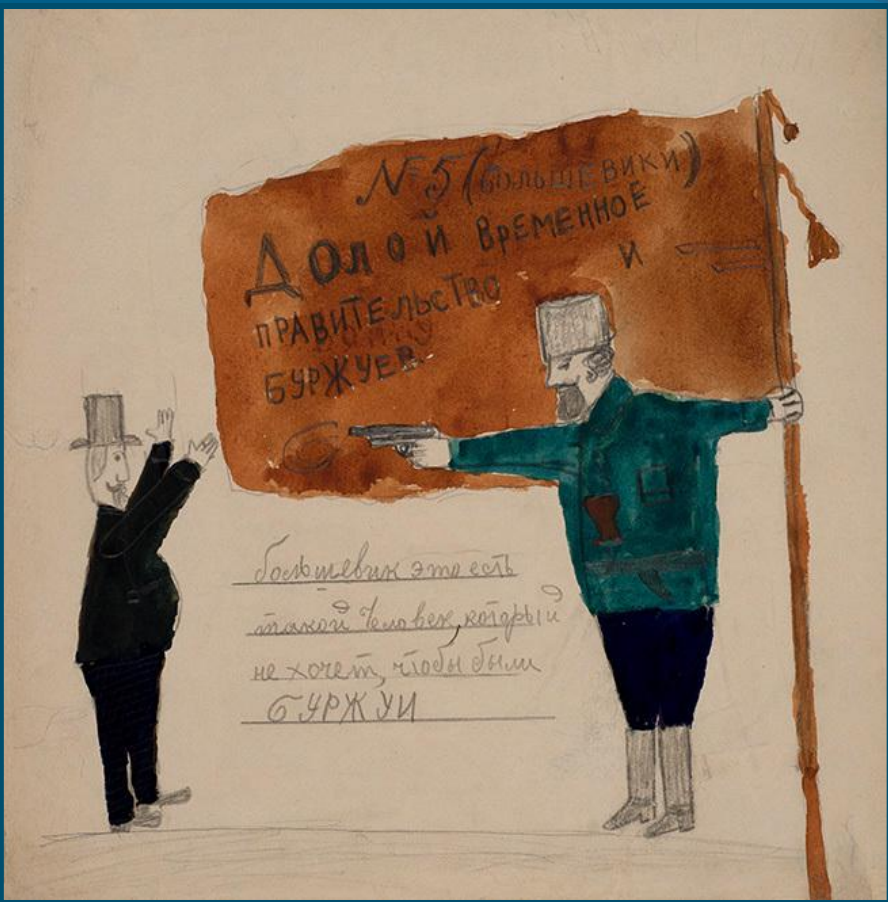 №5 (большевики)
Долой временное
правительство и
буржуев.
большевик это есть
такой человек, который
не хочет, чтобы были
БУРЖУИ